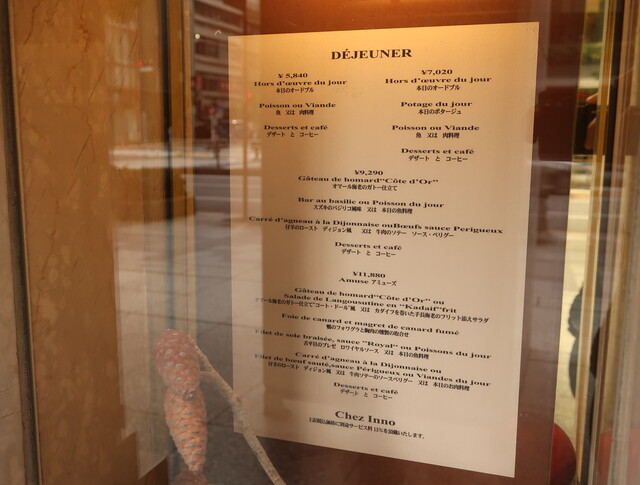 DÉJEUNER
¥5,840
Hors d'œuvre du jour
本日のオードブル
Poisson ou Viande
魚 又は 肉料理
Desserts et café
デザート と コーヒー
¥7,020
Hors d'œuvre du jour
本日のオードブル
Potage du jour
本日のポタージュ
Poisson ou Viande
魚 又は 肉料理
Desserts et café
デザート と コーヒー
¥9,290
Gâteau de homard"Côte d'Or"
オマール海老のガトー仕立て
Bar au basilic ou Poisson du jour
スズキのバジリコ風味 又は 本日の魚料理
Carré d'agneau à la Dijonnaise ouBœufs sauce Perigueux
仔羊のロースト ディジョン風 又は 牛肉のソテー ソース・ペリグー
Desserts et café
デザート と コーヒー
¥11,880
Amuse アミューズ
Gâteau de homard"Côte d'Or" ou
Salade de Langoustine en "Kadaif"frit
オマール海老のガトー仕立て"コート・ドール"風 又は カダイフを巻いた手長海老のフリット添えサラダ
Foie de canard et magret de canard fumé
鴨のフォワグラと胸肉の燻製の取合せ
Filet de sole braisée, sauce "Royal" ou Poissons du jour
舌平目のブレゼ ロワイヤルソース 又は 本日の魚料理
Carré d'agneau à la Dijonnaise ou
Filet de bœuf sauté,sauce Périgueux ou Viandes du jour
仔羊のロースト ディジョン風 又は 牛肉ソテーのソースペリグー 又は 本日のお肉料理
Desserts et café
デザート と コーヒー
Chez Inno
上記税込価格に別途サービス料 13%を頂戴いたします。